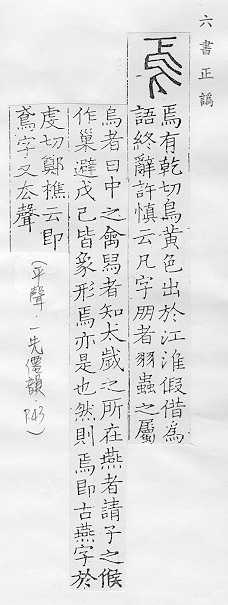 六書正譌
焉
焉有乾切鳥黃色出於江淮假借為
語終辭許慎云凡字朋者羽蟲之屬
烏者日中之禽舄者知太歲之所在燕者請子之候
作巢避戊己皆象形焉亦是也然則焉即古燕字於
虔切鄭樵云即
鳶字又厺聲
(平聲．一先僊韻．P43)